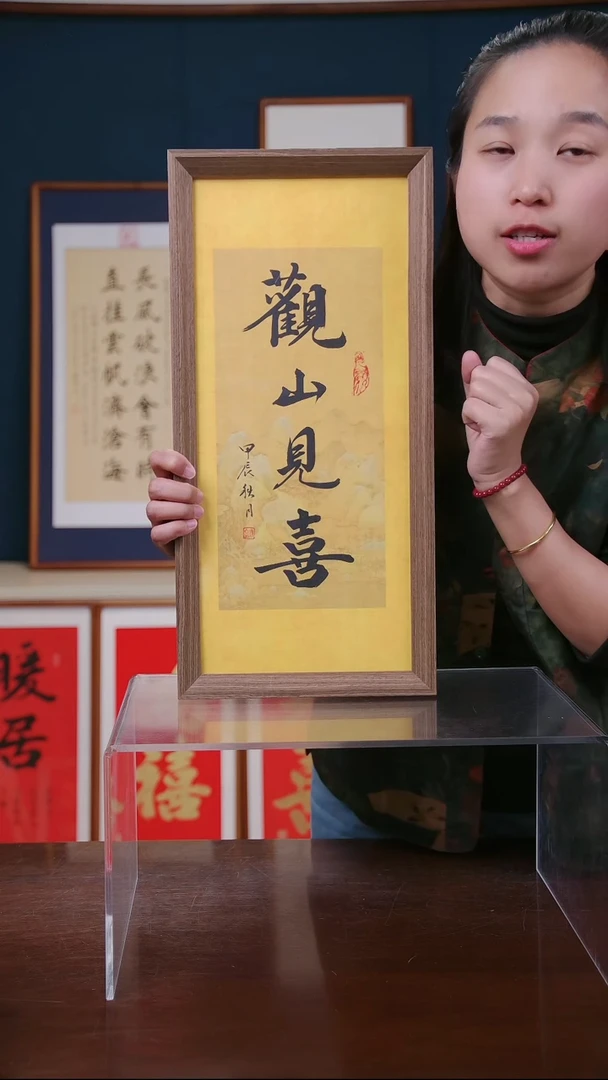 觀山見喜
甲辰秋月
長風破浪會有時
直挂雲帆濟滄海
暖居
禧
喜